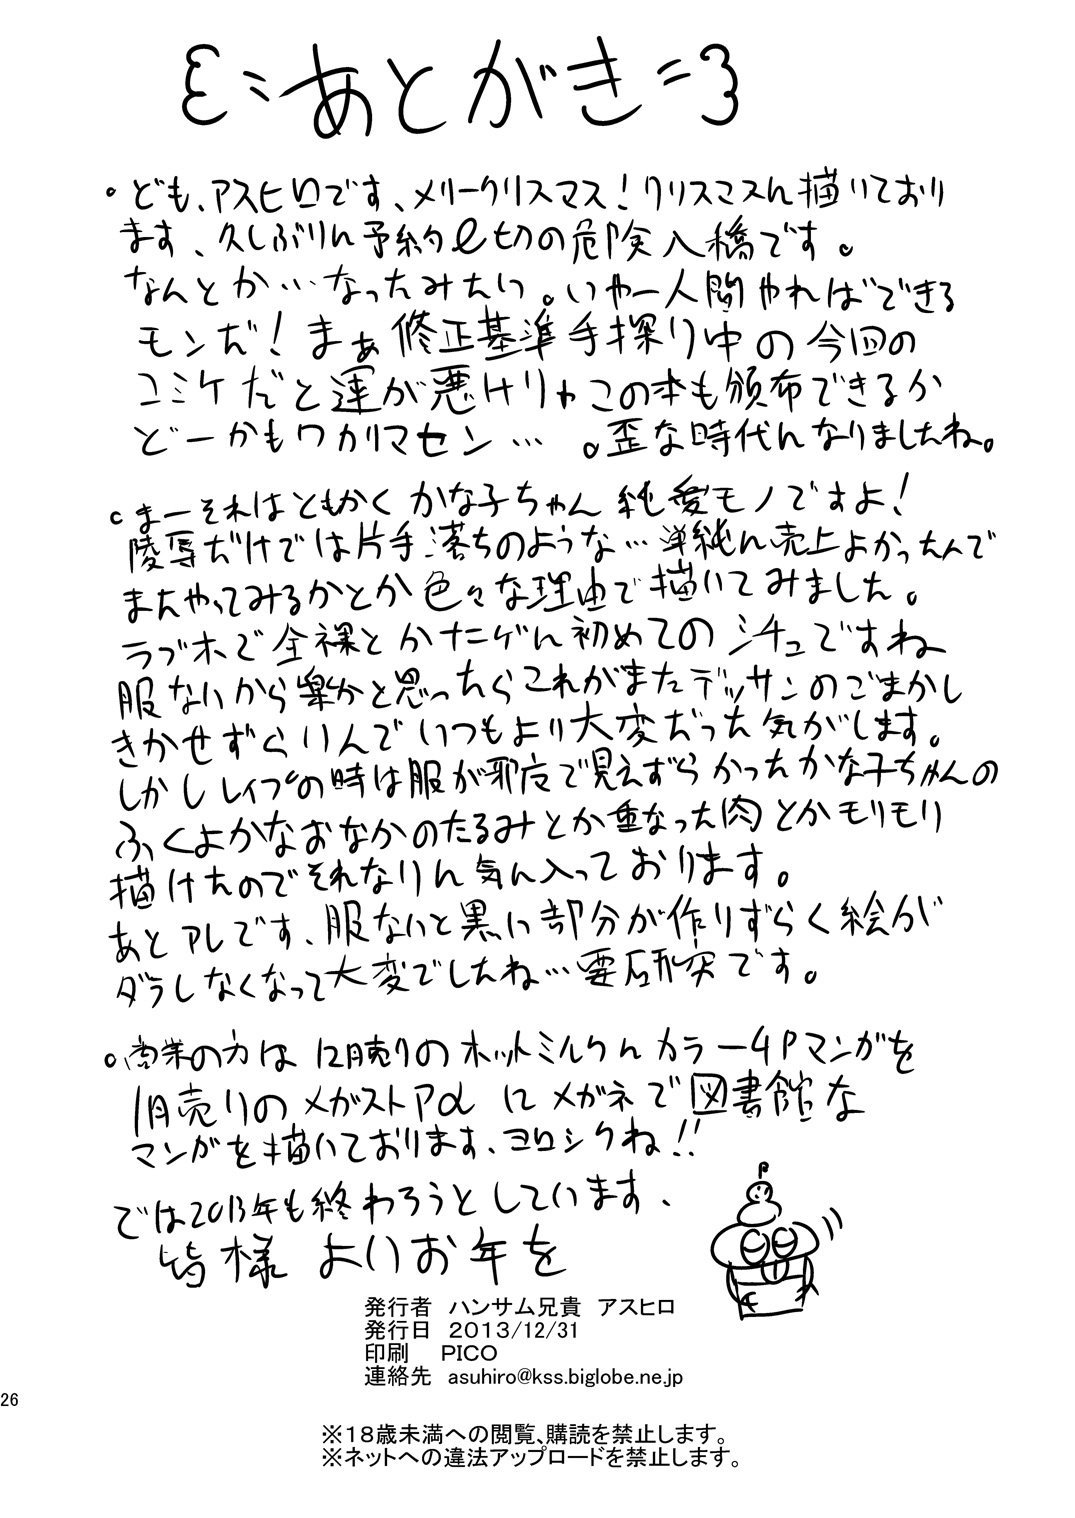 あとがき
。ども、アスヒロです、メリークリスマス!クリスマスに描いており
ます、久しぶりに予約〆切の危険入稿です。
なんとか…なったみたい。いやー人間やればできる
モンだ!まぁ修正基準手探り中の今回の
コミケだと運が悪けりゃこの本も頒布できるか
どーかもワカリマセン… 。歪な時代になりましたね。
。まーそれはともかくかな子ちゃん純愛モノですよ!
陵辱だけでは片手落ちのような…単純に売上よかったんで
またやってみるかとか色々な理由で描いてみました。
ラブホで全裸とかナニゲに初めてのシチュですね
服ないから楽かと思ったらこれがまたデッサンのごまかし
きかせずらいんでいつもより大変だった気がします。
しかしレイプの時は服が邪広で見えずらかったかな子ちゃんの
ふくよかなおなかのたるみとか重なった肉とかモリモリ
描けたのでそれなりに気に入っております。
あとアレです、服ないと黒い部分が作りずらく絵が
ダラしなくなって大変でしたね…要研究です。
。商業の方は12月売りのホットミルクにカラー4Pマンガを
1月売りのメガストアαにメガネで図書館な
マンガを描いております、ヨロシクね!!
では2013年も終わろうとしています、
皆様よいお年を
発行者 ハンサム兄貴 アスヒロ
発行日 2013/12/31
印刷 PICO
連絡先 asuhiro@kss.biglobe.ne.jp
26
※18歳未満への閲覧、購読を禁止します。
※ネットへの違法アップロードを禁止します。